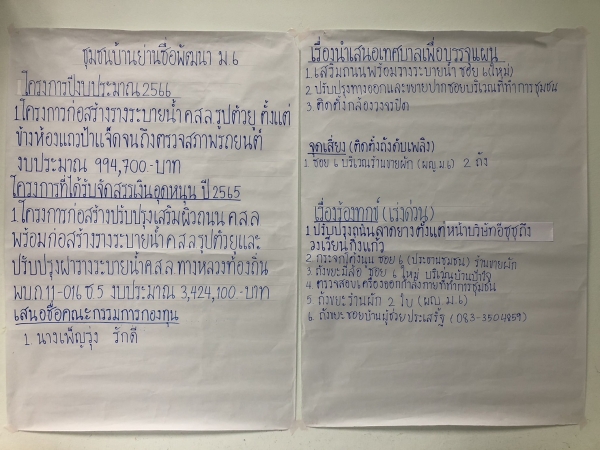 ชุมชนบ้านย่านซื่อพัฒนา ม 6
โครงการปีงบประมาณ 2566
1.โครงการก่อสร้างรางระบายน้ำ ค ส ล รูปตัวยู ตั้งแต่
ข้างห้องแถวป้าแจ็ดจนถึงตรวจสภาพรถยนต์
งบประมาณ 994,700.-บาท
โครงการที่ได้รับจัดสรรเงินอุดหนุน ปี 2565
1.โครงการก่อสร้างปรับปรุงเสริมผิวถนน ค ส ล
พร้อมก่อสร้างรางระบายน้ำ ค ส ล รูปตัวยูและ
ปรับปรุงฝารางระบายน้ำ ค.ส.ล ทางหลวงท้องถิ่น
พบ.ถ.11-016 ช.5 งบประมาณ 3,424,100.-บาท
เสนอชื่อคณะกรรมการกองทุน
1. นางเพ็ญรุ่ง รักดี
เรื่องนำเสนอเทศบาลเพื่อบรรจุแผน
1. เสริมถนนพร้อมวางระบายน้ำ ซอย 6(ใหม่)
2. ปรับปรุงทางออกและขยายปากซอยบริเวณที่ทำการชุมชน
3. ติดตั้งกล้องวงจรปิด
จุดเสี่ยง (ติดตั้งถังดับเพลิง)
1. ซอย 6 บริเวณร้านขายผัก (ผญ.ม.6) 2 ถัง
เรื่องร้องทุกข์ (เร่งด่วน)
1.ปรับปรุงถนนลาดยางตั้งแต่หน้าบริษัทอีซูซุถึง
วงเวียนกิ่งแก้ว
2. กระจกโค้งนูน ซอย 6 (ประธานชุมชน) ร้านขายผัก
3. ถังขยะมีล้อ ซอย 6 ใหม่ บริเวณบ้าน
4. ตรวจสอบเครื่องออกกำลังกายที่ทำการชุมชน
5. ถังขยะร้านผัก 2 ใบ (ผญ.ม.6)
6. ถังขยะซอยบ้านผู้ช่วยประเสริฐ (083-3504859)